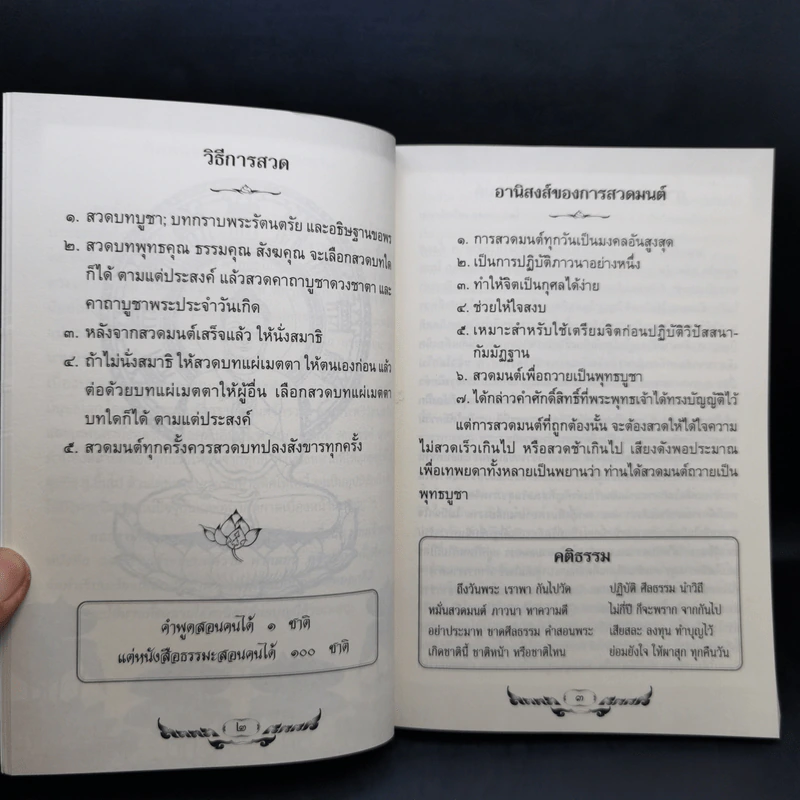 วิธีการสวด
๑. สวดบทบูชา; บทกราบพระรัตนตรัย และอธิษฐานขอพร
๒. สวดบทพุทธคุณ ธรรมคุณ สังฆคุณ จะเลือกสวดบทใด
ก็ได้ ตามแต่ประสงค์ แล้วสวดคาถาบูชาดวงชาตา และ
คาถาบูชาพระประจำวันเกิด
๓. หลังจากสวดมนต์เสร็จแล้ว ให้นั่งสมาธิ
๔. ถ้าไม่นั่งสมาธิ ให้สวดบทแผ่เมตตา ให้ตนเองก่อน แล้ว
ต่อด้วยบทแผ่เมตตาให้ผู้อื่น เลือกสวดบทแผ่เมตตา
บทใดก็ได้ ตามแต่ประสงค์
๕. สวดมนต์ทุกครั้งควรสวดบทปลงสังขารทุกครั้ง
คำพูดสอนคนได้ ๑ ชาติ
แต่หนังสือธรรมะสอนคนได้ ๑๐๐ ชาติ
๒
อานิสงส์ของการสวดมนต์
๑. การสวดมนต์ทุกวันเป็นมงคลอันสูงสุด
๒. เป็นการปฏิบัติภาวนาอย่างหนึ่ง
๓. ทำให้จิตเป็นกุศลได้ง่าย
๔. ช่วยให้ใจสงบ
๕. เหมาะสำหรับใช้เตรียมจิตก่อนปฏิบัติวิปัสสนา-
กัมมัฏฐาน
๖. สวดมนต์เพื่อถวายเป็นพุทธบูชา
๗. ได้กล่าวคำศักดิ์สิทธิ์ที่พระพุทธเจ้าได้ทรงบัญญัติไว้
แต่การสวดมนต์ที่ถูกต้องนั้น จะต้องสวดให้ได้ใจความ
ไม่สวดเร็วเกินไป หรือสวดช้าเกินไป เสียงดังพอประมาณ
เพื่อเทพยดาทั้งหลายเป็นพยานว่า ท่านได้สวดมนต์ถวายเป็น
พุทธบูชา
คติธรรม
ถึงวันพระ เราพา กันไปวัด ปฏิบัติ ศีลธรรม นำวิถี
หมั่นสวดมนต์ ภาวนา หาความดี ไม่กี่ปี ก็จะพราก จากกันไป
อย่าประมาท ขาดศีลธรรม คำสอนพระ เสียสละ ลงทุน ทำบุญไว้
เกิดชาตินี้ ชาติหน้า หรือชาติไหน ย่อมยังใจ ให้ผาสุก ทุกคืนวัน
๓